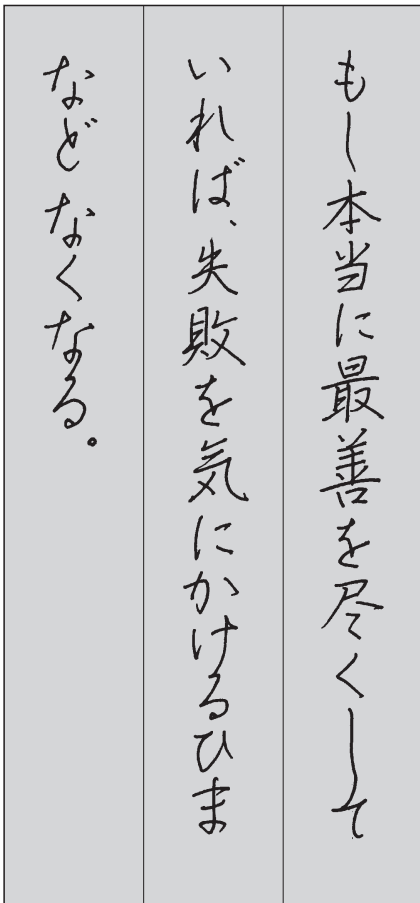 もし本当に最善を尽くして
いれば、失敗を気にかけるひま
などなくなる。